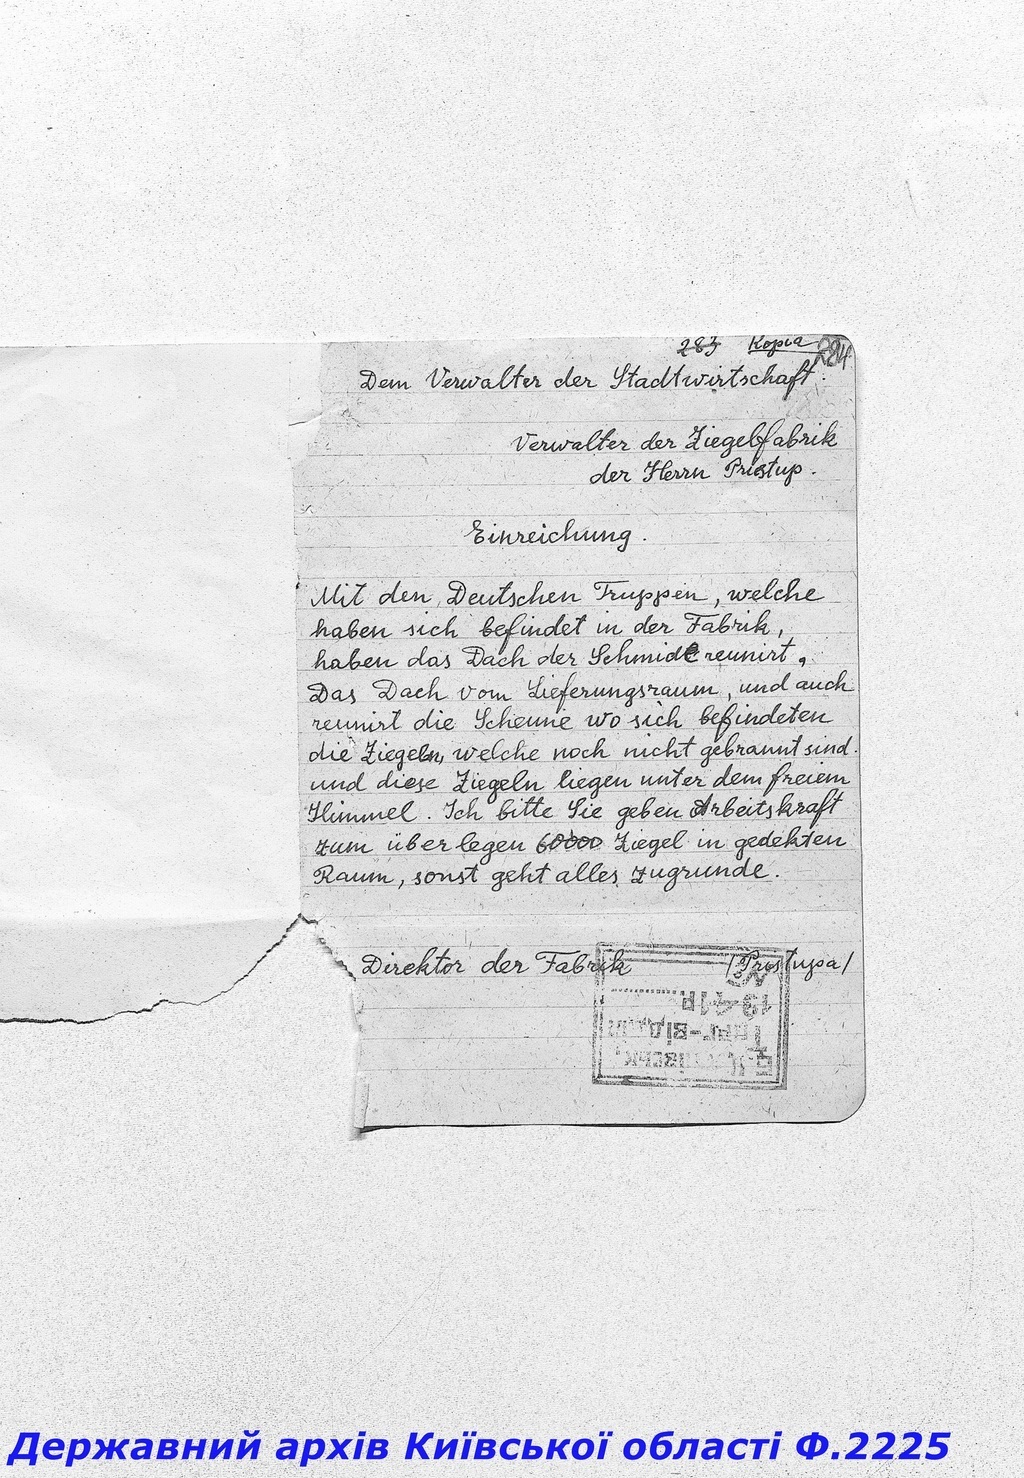 283 Kopia 284
Dem Verwalter der Stadtwirtschaft.
Verwalter der Ziegelfabrik
der Herrn Pristup.
Einreichung.
Mit den Deutschen Truppen, welche
haben sich befindet in der Fabrik,
haben das Dach der Schmide reunirt,
Das Dach vom Lieferungsraum, und auch
reunirt die Scheune wo sich befindeten
die Ziegeln, welche noch nicht gebrannt sind.
und diese Ziegeln liegen unter dem freiem
Himmel. Ich bitte Sie geben Arbeitskraft
zum über legen 60000 Ziegel in gedekten
Raum, sonst geht alles zugrunde.
Direktor der Fabrik /Pristupa/
194 р.
Державний архів Київської області Ф.2225